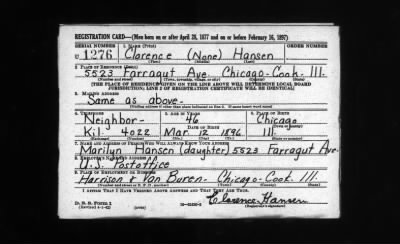 REGISTRATION CARD—(Men born on or after April 28, 1877 and on or before February 16, 1897)
SERIAL NUMBER 1. NAME (Print) ORDER NUMBER
U 1276 Clarence (None) Hansen
2. PLACE OF RESIDENCE (Print)
5523 Farragut Ave. Chicago-Cook-Ill.
(Number and street) (Town, township, village, or city) (County) (State)
[THE PLACE OF RESIDENCE GIVEN ON THE LINE ABOVE WILL DETERMINE LOCAL BOARD
JURISDICTION; LINE 2 OF REGISTRATION CERTIFICATE WILL BE IDENTICAL]
3. MAILING ADDRESS
Same as above-
[Mailing address if other than place indicated on line 2. If same insert word same]
4. TELEPHONE 5. AGE IN YEARS 6. PLACE OF BIRTH
Neighbor- 46 Chicago
DATE OF BIRTH (Town or county)
Kil. 4022 Mar. 12 1896 Ill.
(Exchange) (Number) (Mo.) (Day) (Yr.) (State or country)
7. NAME AND ADDRESS OF PERSON WHO WILL ALWAYS KNOW YOUR ADDRESS
Marilyn Hansen (daughter) 5523 Farragut Ave.
8. EMPLOYER'S NAME AND ADDRESS
U.S. Postoffice
9. PLACE OF EMPLOYMENT OR BUSINESS
Harrison & Van Buren- Chicago-Cook-Ill.
(Number and street or R. F. D. number) (Town) (County) (State)
I AFFIRM THAT I HAVE VERIFIED ABOVE ANSWERS AND THAT THEY ARE TRUE.
Clarence Hansen
D. S. S. Form 1
(Revised 4-1-42) (Registrant's signature)